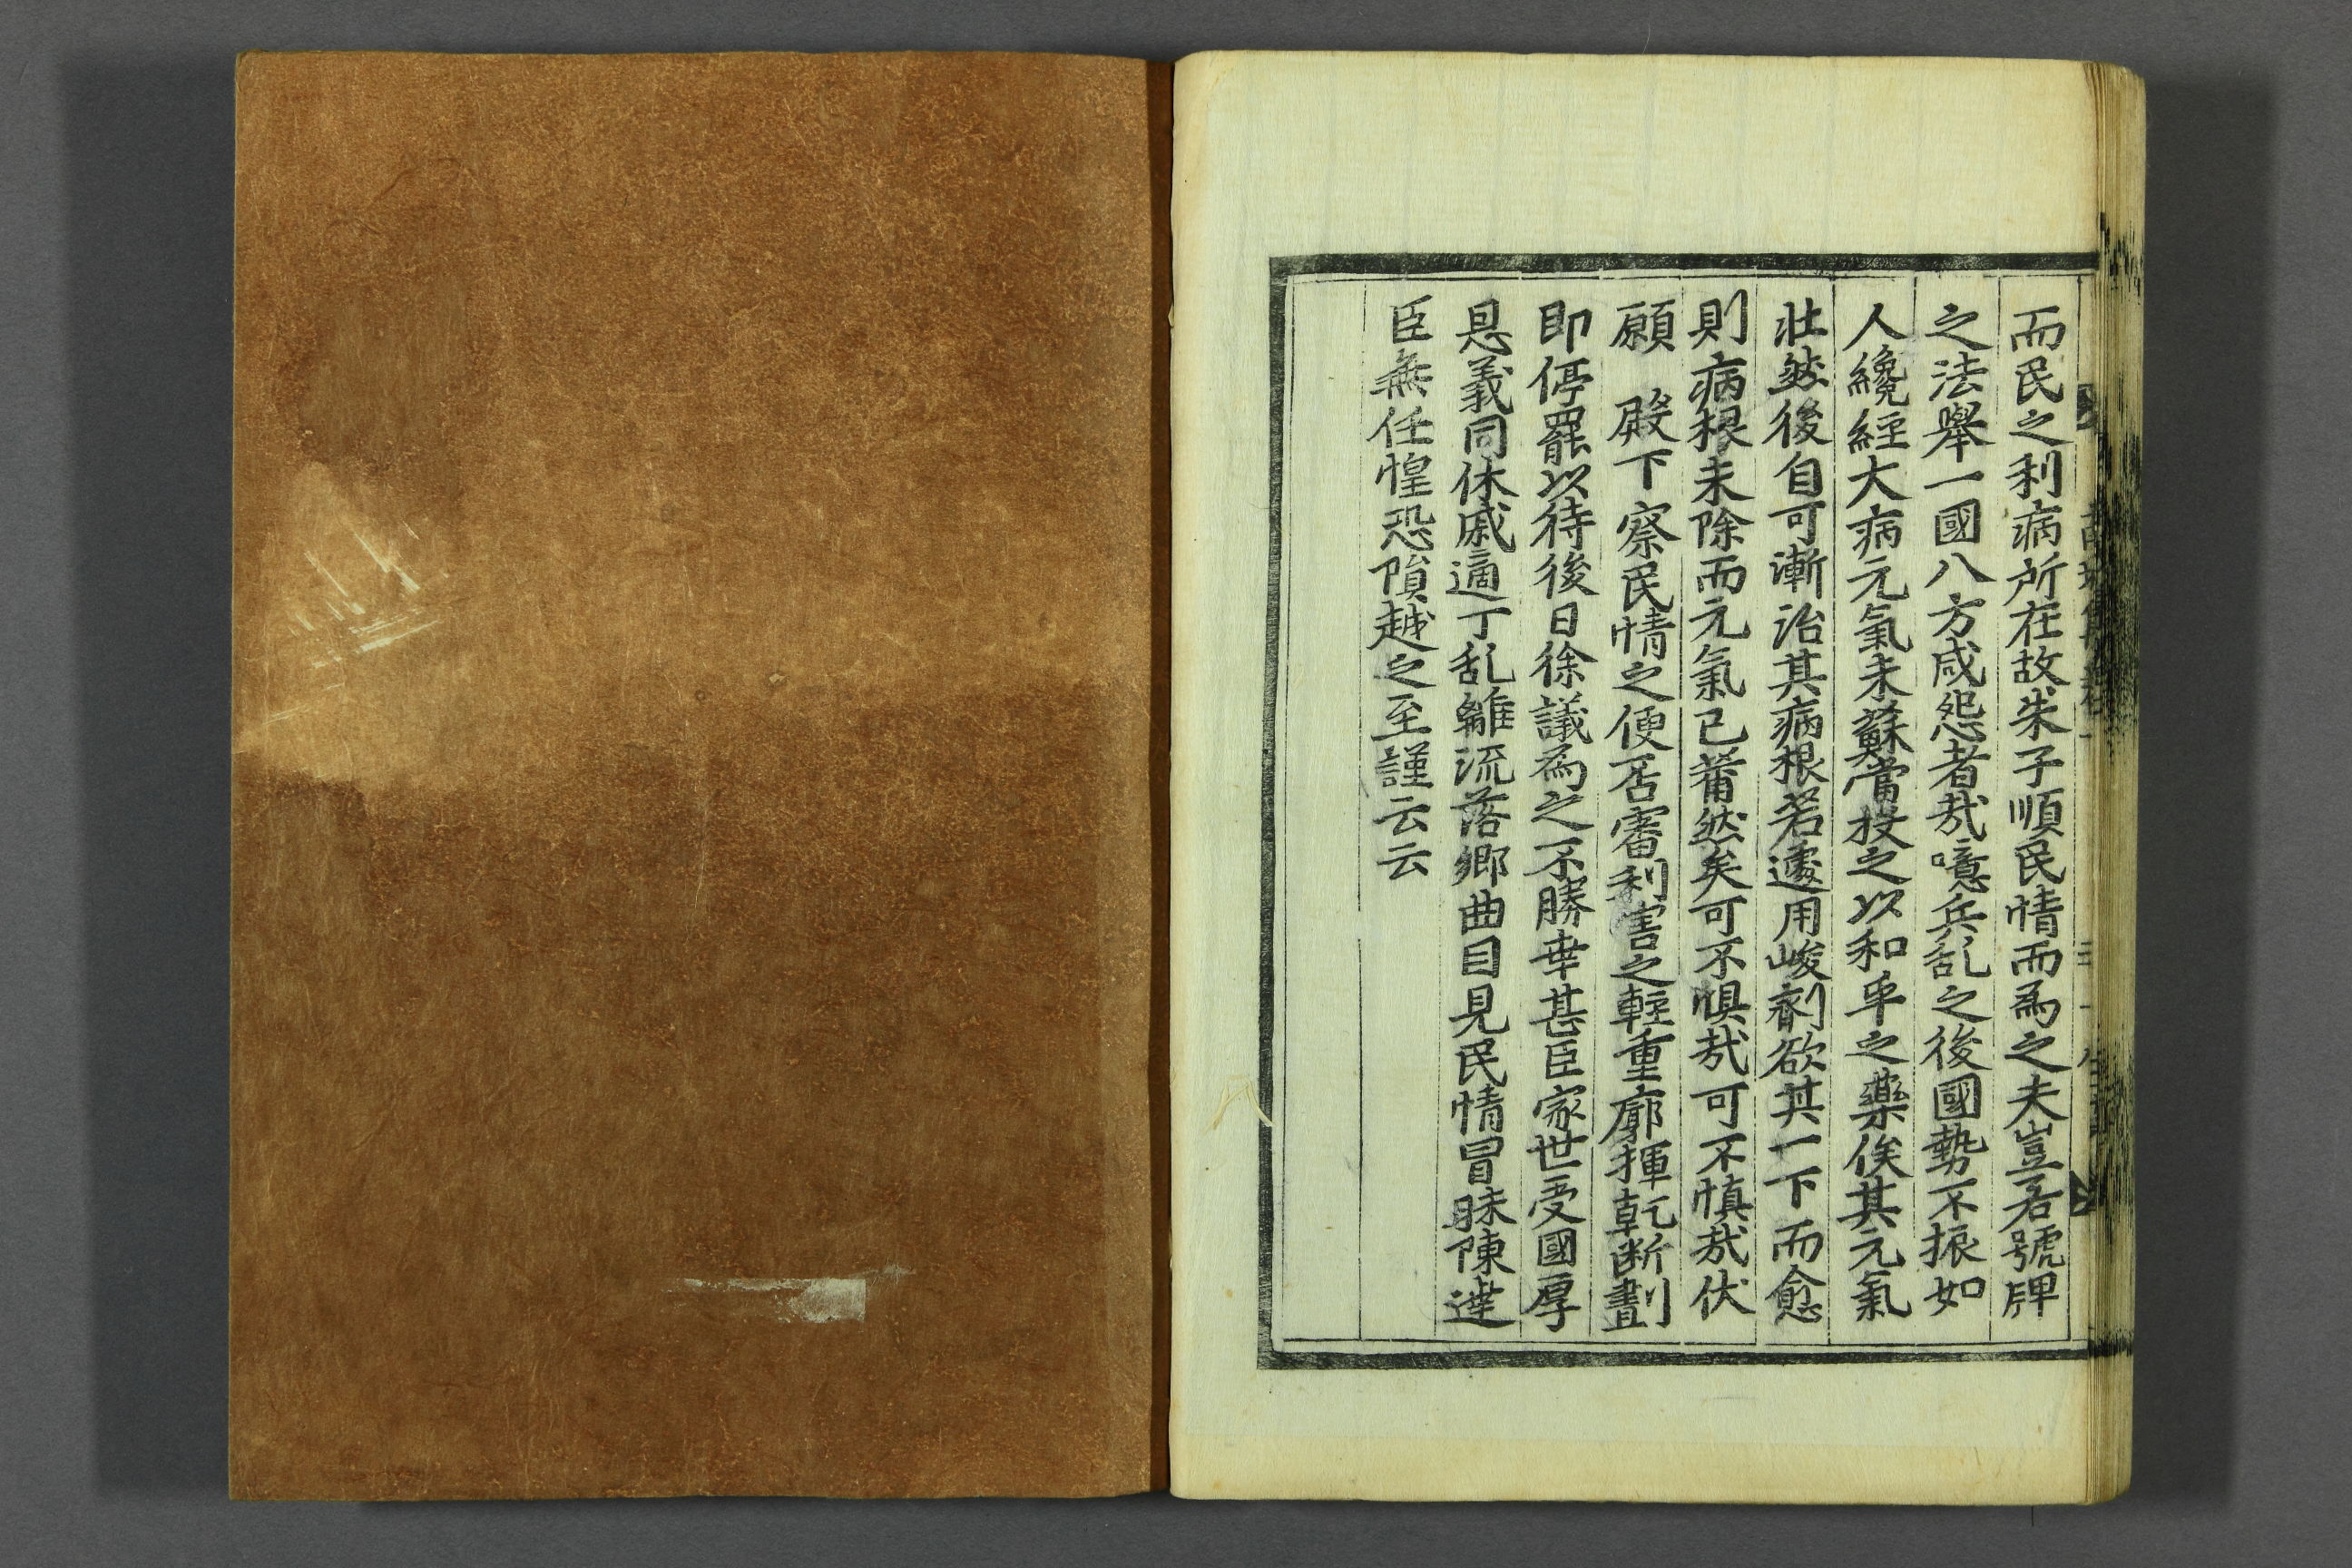 而民之利病所在故朱子順民情而為之夫豈若號牌
之法舉一國八方咸怨者哉噫兵乱之後國勢不振如
人纔經大病元氣未蘇當投之以和平之藥俟其元氣
壯然後自可漸治其病根若遽用峻劑欲其一下而愈
則病根未除而元氣已薾然矣可不惧哉可不慎哉伏
願 殿下察民情之便否審利害之輕重廓揮乾断劃
即停罷以待後日徐議為之不勝幸甚臣家世受國厚
恩義同休戚適丁乱離流落鄉曲目見民情冒昧陳達
臣無任惶恐隕越之至謹云云